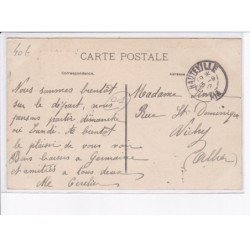 406
CARTE POSTALE
Correspondance
Adresse
HAUTEVILLE
Nous sommes bientôt
sur le départ, nous
pensons partir dimanche
ou lundi. A bientôt
le plaisir de vous voir
Bons baisers à Germaine
et amitiés à tous deux
Madame
Rue St Dominique
Vichy
Allier